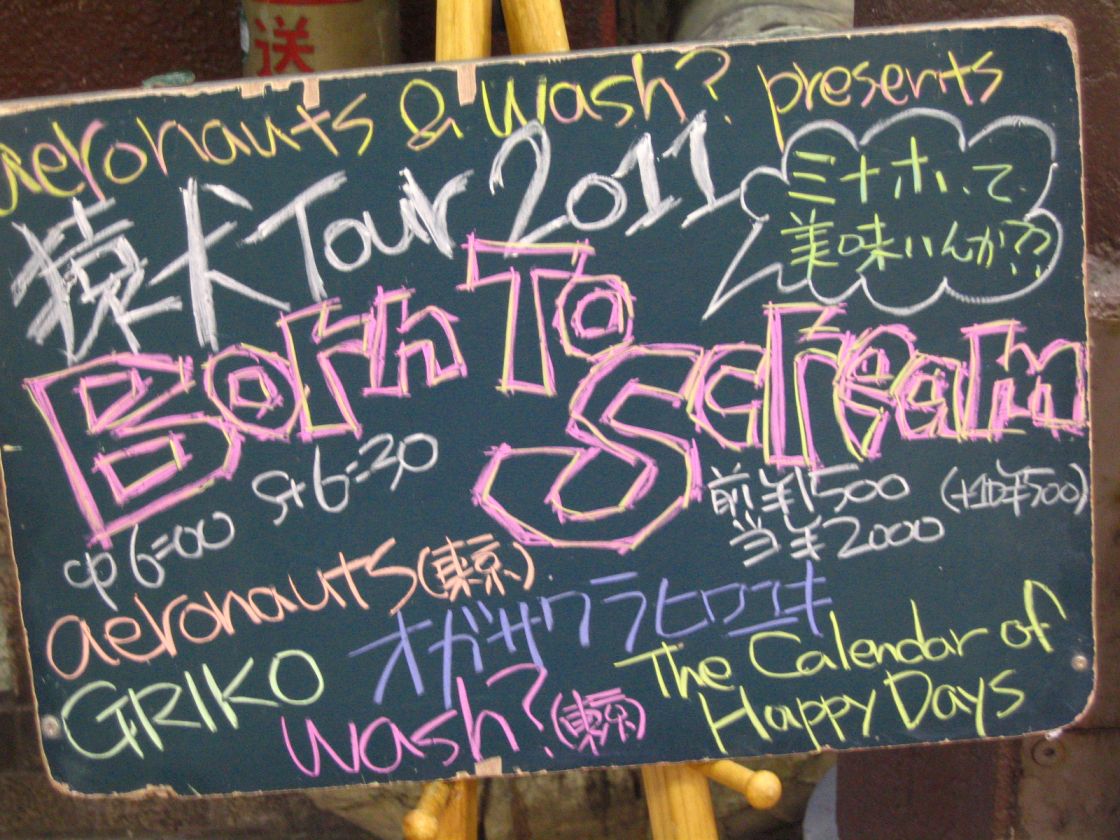 送
aeronauts & wash? presents
猿犬 Tour 2011
ミナホって
美味いんか??
Born To Scream
op 6=00
st 6=30
前¥1500 (+1D¥500)
当¥2000
aeronauts (東京)
オガサワラヒロユキ
GRIKO
wash? (東京)
The Calendar of
Happy Days